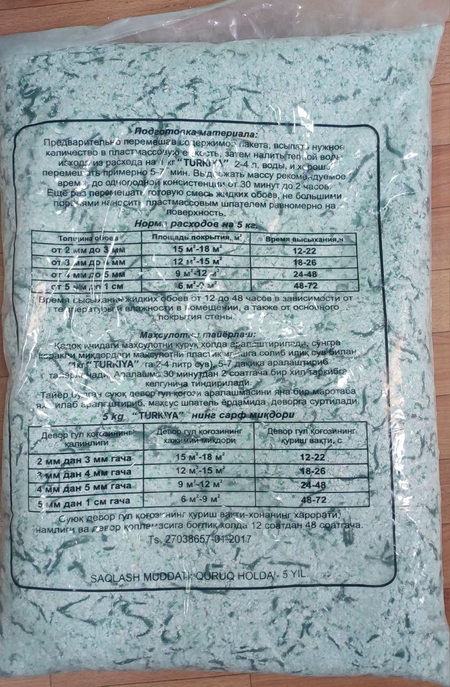 Подготовка материала:
Предварительно перемешав содержимое пакета, всыпать нужное
количество в пластмассовую емкость, затем налить теплой воды
исходя из расхода на 1 кг "TURKIYA" 2-4 л. воды, и хорошо
перемешать примерно 5-7 мин. Выдержать массу рекомендуемое
время, до однородной консистенции от 30 минут до 2 часов.
Еще раз перемешать, готовую смесь жидких обоев, не большими
порциями наносить пластмассовым шпателем равномерно на
поверхность.
Норма расходов на 5 кг.
Толщина обоев Площадь покрытия, м² Время высыхания,ч
от 2 мм до 3 мм 15 м²-18 м² 12-22
от 3 мм до 4 мм 12 м²-15 м² 18-26
от 4 мм до 5 мм 9 м²-12 м² 24-48
от 5 мм до 1 см 6 м²-9 м² 48-72
Время высыхания жидких обоев от 12 до 48 часов в зависимости от
температуры и влажности в помещении, а также от основного
покрытия стены.
Махсулотни тайёрлаш:
махсулотни қуруқ холда аралаштирилади, сўнгра
керакли миқдордаги махсулотни пластик идишга солиб илиқ сув билан
"TURKIYA" га 2-4 литр сув), 5-7 дақиқа аралаштириб
тайёрланади. Аралашма 30 минутдан 2 соатгача бир хил
келгунича тиндирилади.
Тайёр бўлган суюқ девор гул қоғозларини яна бир маротаба
яхшилаб аралаштириб, махсус шпатель ёрдамида, деворга суртилади.
5 kg "TURKIYA" нинг сарф миқдори
Девор гул қоғозининг қалинлиги Девор гул қоғозининг хажмий миқдори Девор гул қоғозининг қуриш вақти, с
2 мм дан 3 мм гача 15 м²-18 м² 12-22
3 мм дан 4 мм гача 12 м²-15 м² 18-26
4 мм дан 5 мм гача 9 м²-12 м² 24-48
5 мм дан 1 см гача 6 м²-9 м² 48-72
Суюқ девор гул қоғозининг қуриш вақти-хонанинг харорати,
намлиги ва девор қопламасига боғлиқ холда 12 соатдан 48 соатгача.
Ts. 27038657-01-2017
SAQLASH MUDDATI "QURUQ HOLDA" - 5 YIL.